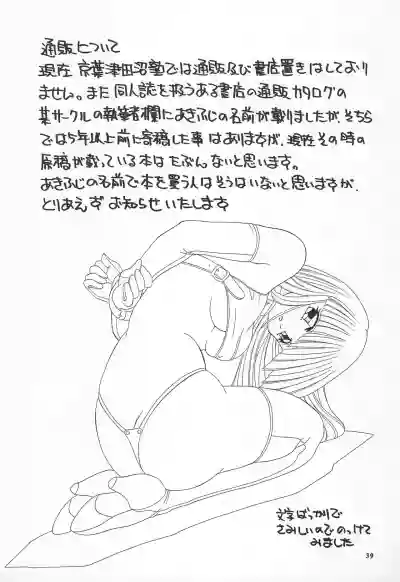 通販について
現在 京葉津田沼塾では通販及び書店置きはしており
ません。また同人誌を扱うある書店の通販カタログの
某サークルの執筆者欄にあきふじの名前が載りましたが、そちら
では5年以上前に寄稿した事はありますが、現在その時の
原稿が載っている本はたぶんないと思います。
あきふじの名前で本を買う人はそうはいないと思いますが、
とりあえず お知らせいたします
文字ばっかりで
さみしいのでのっけて
みました
39